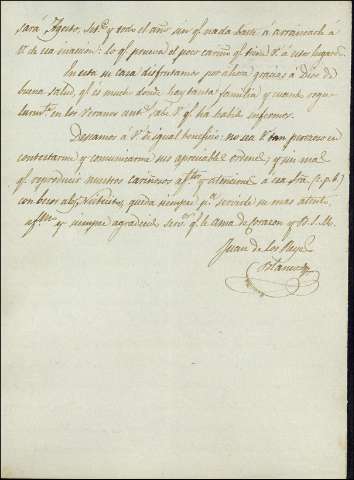 sará Agosto, Set.e y todo el año sin q.e nada baste á arrancarle á
V. de esa mansion: lo q.e prueba el poco cariño q.e tiene V. á estos lugares.
En esta su casa disfrutamos por ahora gracias á Dios de
buena salud, q.e es mucho donde hay tanta familia y cuando regu-
larm.te en los Veranos ant.s sabe V. q.e ha habido enfermos.
Deseamos á V. igual beneficio; no sea V. tan perezoso en
contestarme y comunicarme sus apreciables ordenes; y sin mas
q.e reproducir nuestros cariñosos af.tos y atenciones á esa Sra. (c.p.b.)
con besos al, queda siempre p.a servirle su mas atent.
af.mo y siempre agradecid. serv.r q.e le ama de corazon y B.S.M.
Juan de los Reyes
Blanco